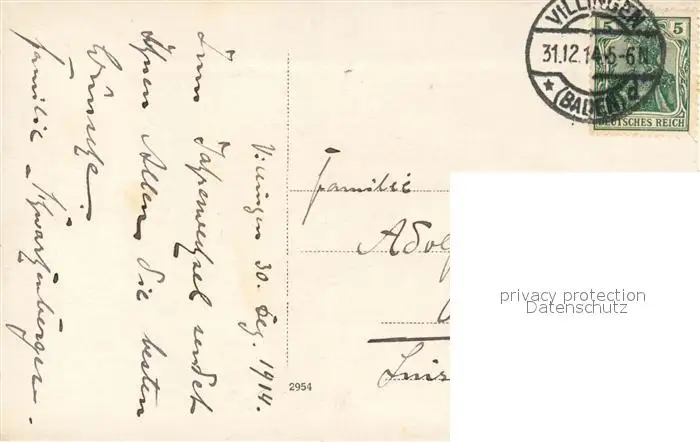 Villingen 30. Dez. 1914.
Zum Jahreswechsel sendet
Ihnen Allen die besten
Wünsche!
Familie Schwarzenberger.
Familie
Adol
2954
VILLINGEN
31.12.14.5-6N
* (BADEN) 2
5 5
DEUTSCHES REICH
privacy protection
Datenschutz